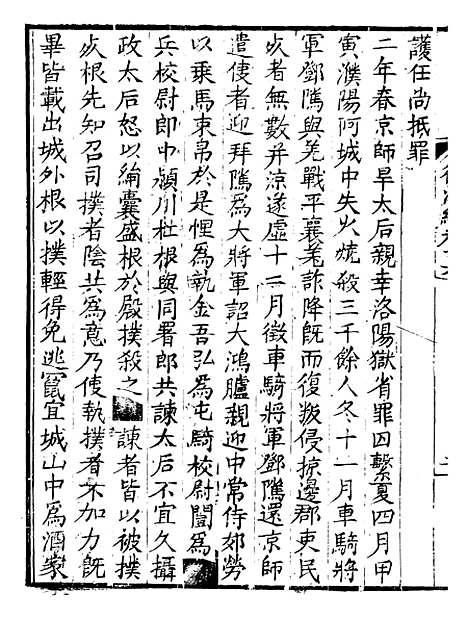 護任尚抵罪
二年春京師旱太后親幸洛陽獄省罪囚繫夏四月甲
寅濮陽阿城中失火燒殺三千餘人冬十一月車騎將
軍鄧隲與羌戰平襄羌詐降旣而復叛侵掠邊郡吏民
死者無數并涼遂虛十一月徵車騎將軍鄧隲還京師
遣使者迎拜隲爲大將軍詔大鴻臚親迎中常侍郊勞
以乗馬束帛於是悝爲執金吾弘爲屯騎校尉閶爲
兵校尉郎中潁川杜根與同署郎共諫太后不宜久攝
政太后怒以絹囊盛根於殿撲殺之 諫者皆以被撲
死根先知召司撲者陰共爲意乃使執撲者不加力旣
畢皆載出城外根以撲輕得免逃竄宜城山中爲酒家